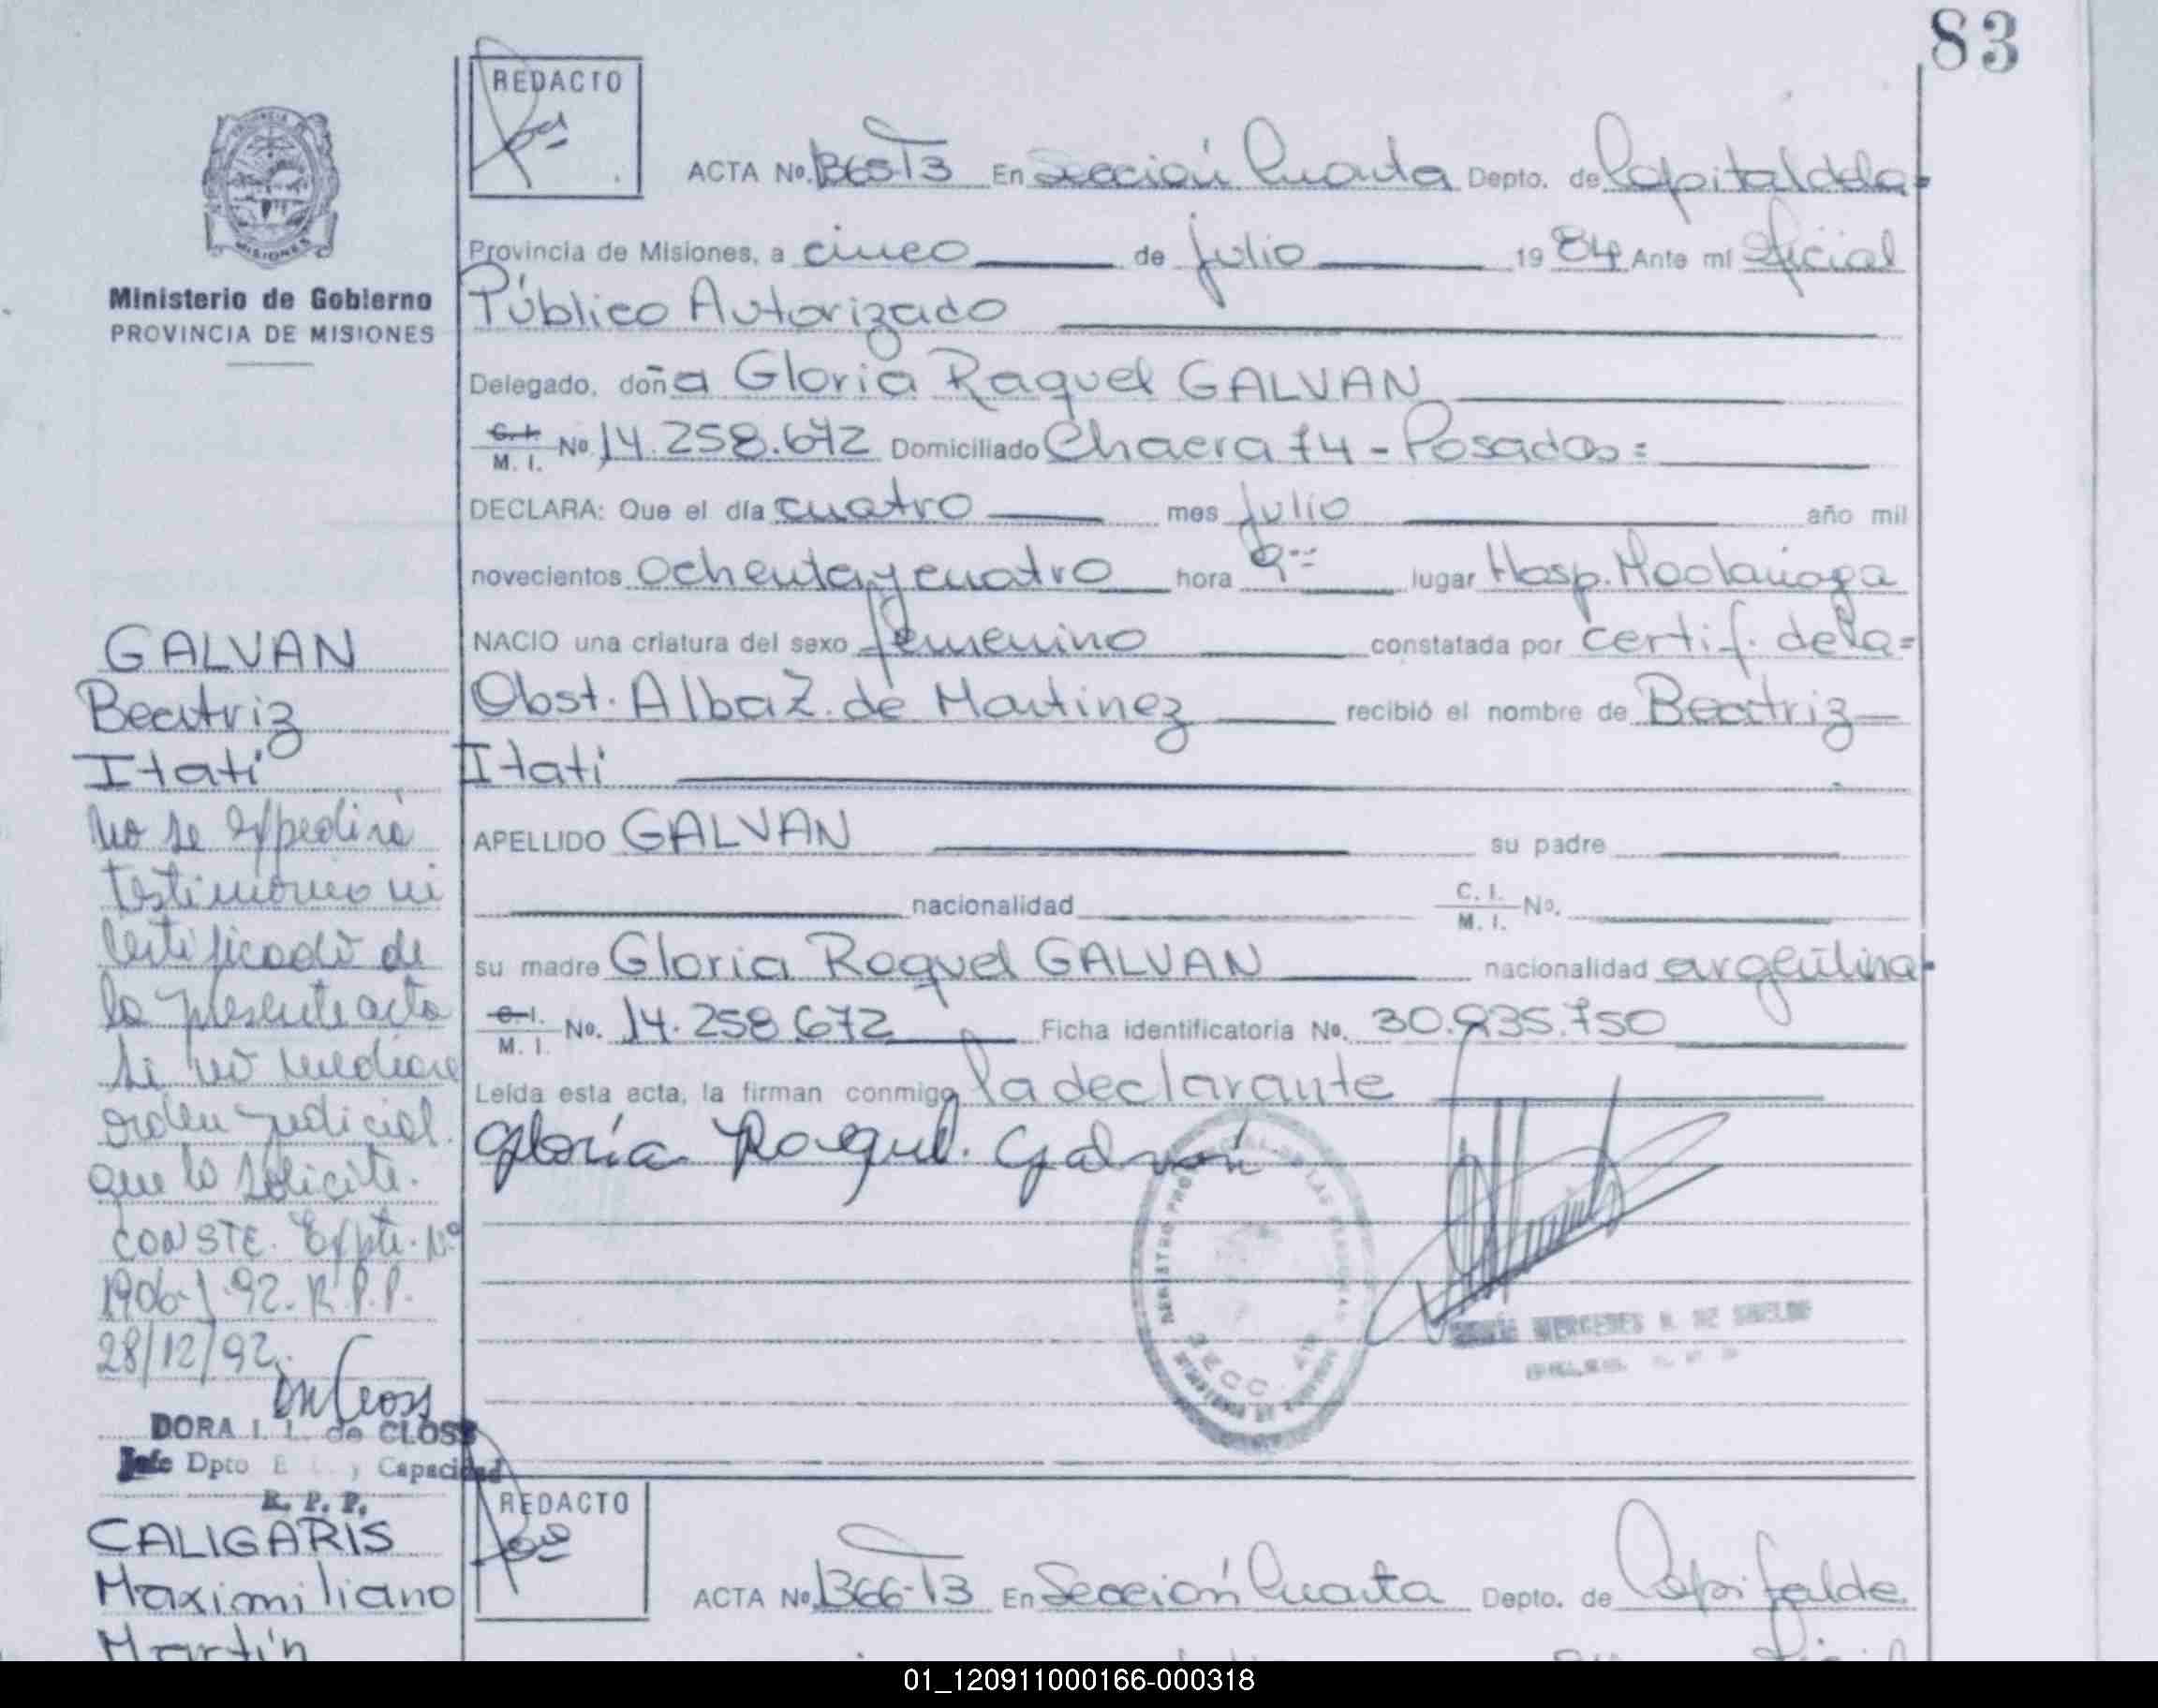 83
REDACTO
ACTA No. 1365-T3 En Sección Cuarta Depto. de Capital de la=
Ministerio de Gobierno
PROVINCIA DE MISIONES
Provincia de Misiones, a cinco de julio 1984 Ante mi Oficial
Público Autorizado
Delegado, doña Gloria Raquel GALVAN
C.I. M. I. No 14.258.672 Domiciliado Chacra 74 - Posadas=
DECLARA: Que el día cuatro mes julio año mil
novecientos ochenta y cuatro hora 9 lugar Hosp. Madariaga
NACIO una criatura del sexo femenino constatada por certif. de la=
Obst. Alba Z. de Martinez recibió el nombre de Beatriz
Itatí
APELLIDO GALVAN su padre
nacionalidad C. I. M. I. No.
su madre Gloria Raquel GALVAN nacionalidad argentina
C.I. M. I. No. 14.258.672 Ficha identificatoria No. 30.935.750
Leída esta acta, la firman conmigo la declarante
Gloria Raquel Galván
GALVAN
Beatriz
Itatí
No se expedirá
testimonio ni
certificado de
la presente acta
si no mediare
orden judicial
que lo solicite.
CONSTE. Expte. Nº
1906-J-92. R.P.P.
28/12/92.
DORA I. L. de CLOSS
Jefe Dpto E y Capacidad
R. P. P.
REGISTRO PROVINCIAL DE LAS PERSONAS
SECC 4ta
MERCEDES N. DE
CALIGARIS
Maximiliano
Martín
REDACTO
ACTA No 1366-T3 En Sección Cuarta Depto. de Capital de
01_120911000166-000318